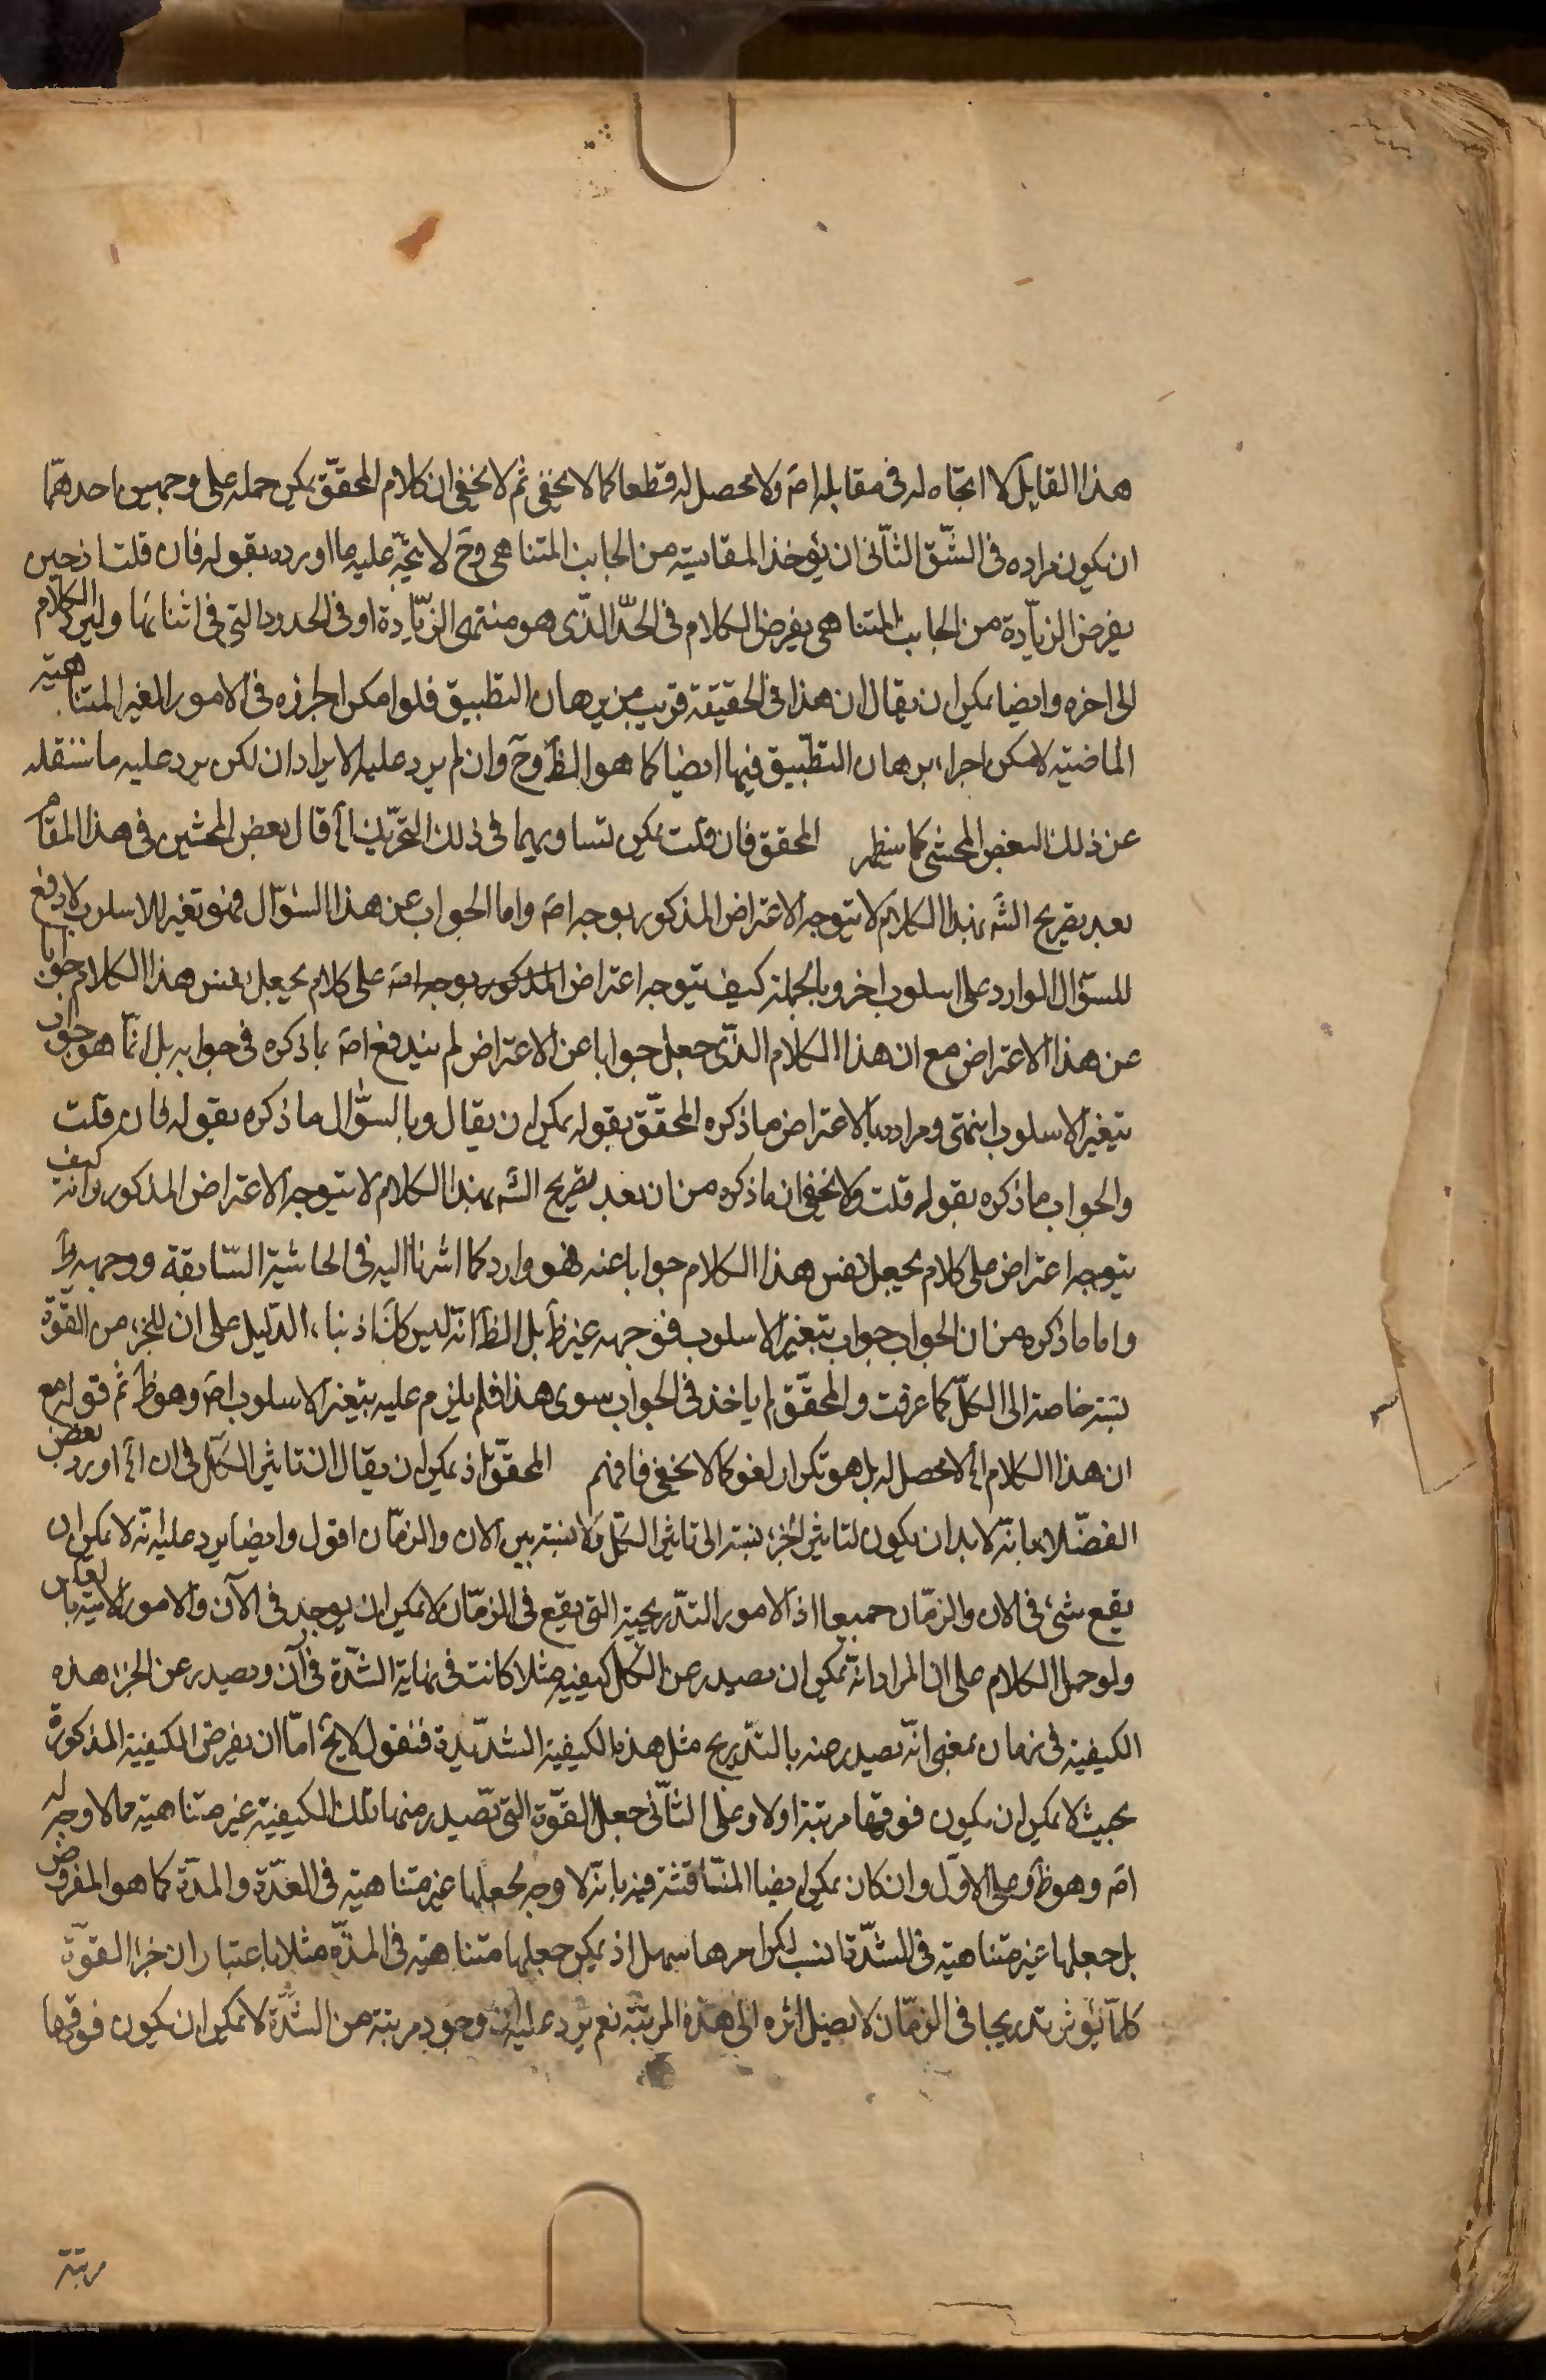 هذا القايل لا اتجاه له فى مقابله اصَ ولا محصل له قطعا كما لا يخفى ثم لا يخفى ان كلام المحقّق يمكن حمله على وجهين احدهما
ان يكون مراده فى الشّق الثّانى ان يؤخذ المقايسة من الجانب المتناهى وحَ لا يتّجه عليه ما اورده بقوله فان قلت اذ حين
يفرض الزيادة من الجانب المتناهى يفرض الكلام فى الحدّ الذّى هو منتهى الزيّادة او فى الحدود التى فى اثنائها وليس الكلام
الى اخره وايضا يمكن ان يقال ان هذا فى الحقيقة قريب من برهان التطبيق فلو امكن اجراؤه فى الامور الغير المتناهية
الماضية لامكن اجراء برهان التطبّيق فيها ايضا كما هو الظَ وحَ وان لم يرد عليه الايرادان لكن يرد عليه ما سننقله
عن ذلك البعض المحشى كما سيظهر المحقق فان قلت يمكن تساويهما فى ذلك التحريك الخ قال بعض المحشين فى هذا المقام
بعد تصريح الشَه بهذا الكلام لا يتوجه الاعتراض المذكور بوجه اصَ واما الجواب عن هذا السّؤال فهو تغير للاسلوب لا دفع
للسؤّال الوارد على اسلوب اخر وبالجملة كيف يتوجه اعتراض المذكور بوجه اصَ على كلام يجعل نفس هذا الكلام جوابا
عن هذا الاعتراض مع ان هذا الكلام الذّى جعل جوابا عن الاعتراض لم يندفع اصَ بما ذكره فى جوابه بل انّما هو جواب
بتغير الاسلوب انتهى ومراده بالاعتراض ما ذكره المحقّق بقوله يمكن ان يقال وبالسؤّال ما ذكره بقوله فان قلت
والجواب ما ذكره بقوله قلت ولا يخفى ان ما ذكره من ان بعد تصريح الشَه بهذا الكلام لا يتوجه الاعتراض المذكور وانه كيف
يتوجه اعتراض على كلام يجعل نفس هذا الكلام جوابا عنه فهو وارد كما اشرنا اليه فى الحاشية السّابقة ووجهه ظَ
واما ما ذكره من ان الجواب جواب بتغير الاسلوب فوجهه غير ظَ بل الظَ انّه ليس كَكَ اذ بناء الدّليل على ان للجزء من القوّة
نسبة خاصة الى الكلّ كما عرفت والمحقّق لم ياخذ فى الجواب سوى هذا فلم يلزم عليه تغير الاسلوب اصَ وهو ظَ ثم قوله مع
ان هذا الكلام الخ لا محصل له بل هو تكرار لغو كما لا يخفى فافهم المحقّق اذ يمكن ان يقال ان تاثير الكّل فى ان الخ اورد بعض
الفضّلاء بانّه لابد ان يكون لتاثير الجزء نسبة الى تاثير الكّل ولا نسبة بين الان والزمّان اقول وايضا يرد عليه انّه لا يمكن ان
يقع شئ فى الان والزمّان جميعا اذ الامور التدّريجية التى يقع فى الزمّان لا يمكن ان يوجد فى الآن والامور الانية بالعكس
ولو حمل الكلام على ان المراد انّه يمكن ان يصدر من الكل كيفية مثلا كانت فى نهاية الشدّة فى آن ويصدر عن الجزء هذه
الكيفية فى زمان بمعنى انّه يصدر منه بالتدّريج مثل هذه الكيفية الشديّدة فنقول لا يخ امّا ان يفرض الكيفية المذكورة
بحيث لا يمكن ان يكون فوقها مرتبة اولا وعلى الثّانى جعل القوّة التى تصدر منها تلك الكيفية غير متناهية مما لا وجه له
اصَ وهو ظَ وعلى الاوّل وان كان يمكن ايضا المنّاقشة فيه بانّه لا وجه لجعلها غير متناهية فى العدّة والمدّة كما هو المفروض
بل جعلها غير متناهية فى الشدّة انسب لكن امرها سهل اذ يمكن جعلها متناهية فى المدّة مثلا باعتبار ان جزء القوّة
كلمّا يؤثر تدريجا فى الزمّان لا يصل اثره الى هذه المرتبة نعم يرد عليه ان وجود مرتبة من الشدّة لا يمكن ان يكون فوقها
مرتبة